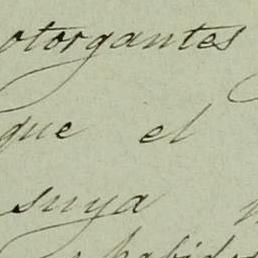 otorgantes
que el
suya
habidos